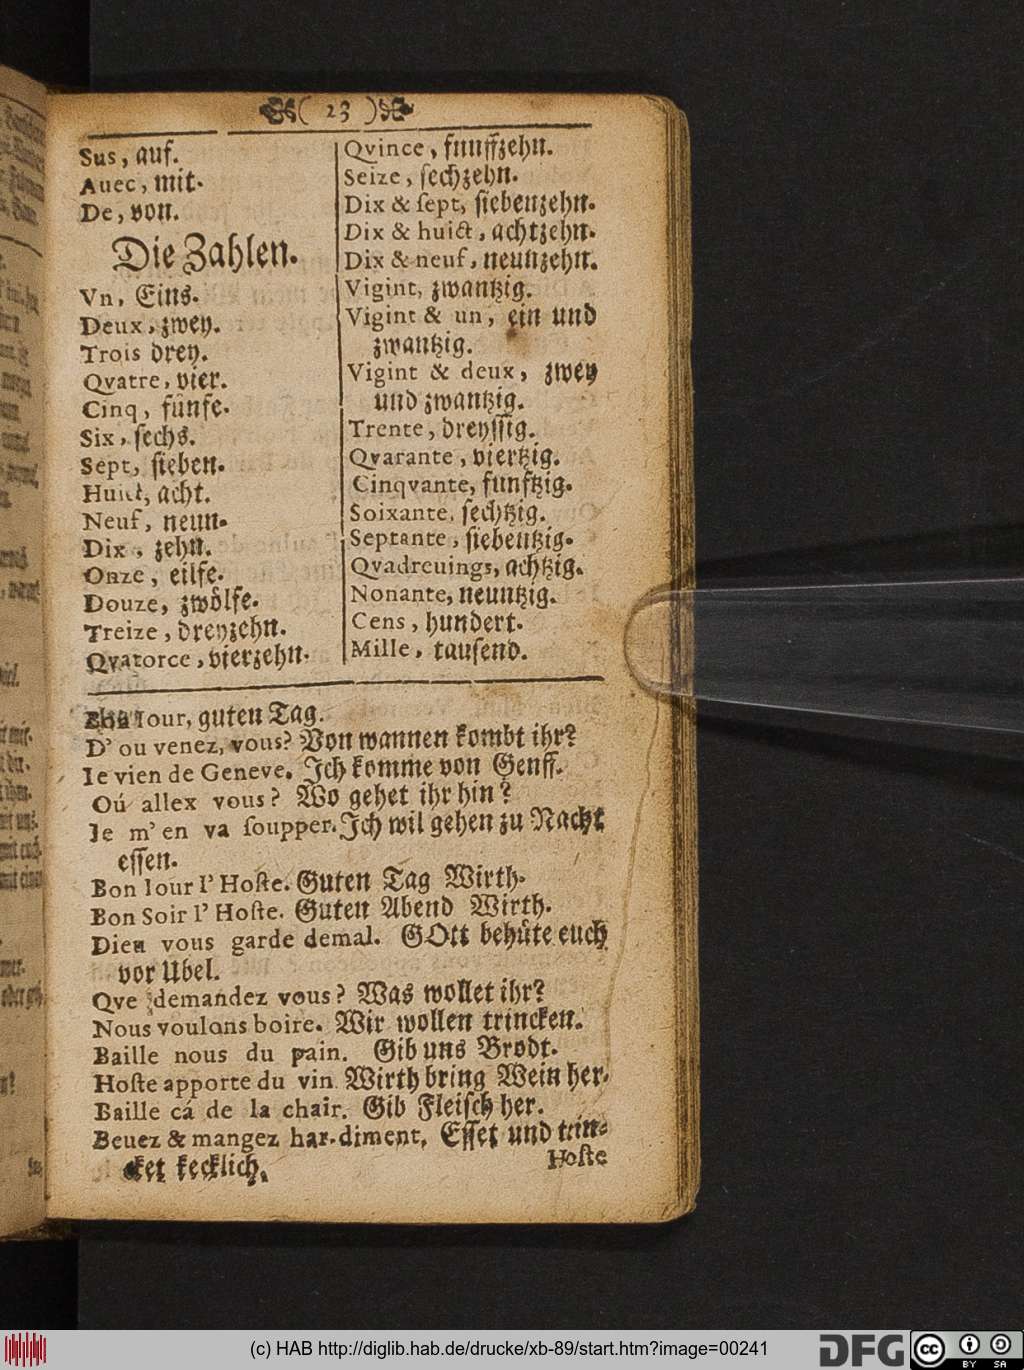 ( 23 )
Sus, auf.
Auec, mit.
De, von.
Die Zahlen.
Vn, Eins.
Deux, zwey.
Trois drey.
Qvatre, vier.
Cinq, fünfe.
Six, sechs.
Sept, sieben.
Huict, acht.
Neuf, neun.
Dix, zehn.
Onze, eilfe.
Douze, zwölfe.
Treize, dreyzehn.
Qvatorce, vierzehn.
Qvince, funffzehn.
Seize, sechzehn.
Dix & sept, siebenzehn.
Dix & huict, achtzehn.
Dix & neuf, neunzehn.
Vigint, zwantzig.
Vigint & un, ein und
zwantzig.
Vigint & deux, zwey
und zwantzig.
Trente, dreyssig.
Qvarante, viertzig.
Cinqvante, funftzig.
Soixante, sechtzig.
Septante, siebentzig.
Qvadreuings, achtzig.
Nonante, neuntzig.
Cens, hundert.
Mille, tausend.
Iour, guten Tag.
D' ou venez, vous? Von wannen kombt ihr?
Ie vien de Geneve. Ich komme von Genff.
Oú allex vous? Wo gehet ihr hin?
Je m' en va soupper. Ich wil gehen zu Nacht
essen.
Bon Iour l' Hoste. Guten Tag Wirth.
Bon Soir l' Hoste. Guten Abend Wirth.
Dieu vous garde demal. GOtt behüte euch
vor Ubel.
Qve demandez vous? Was wollet ihr?
Nous voulons boire. Wir wollen trincken.
Baille nous du pain. Gib uns Brodt.
Hoste apporte du vin. Wirth bring Wein her.
Baille cá de la chair. Gib Fleisch her.
Beuez & mangez har-diment, Esset und trin-
cket kecklich.
Hoste
(c) HAB http://diglib.hab.de/drucke/xb-89/start.htm?image=00241
DFG
cc
BY SA